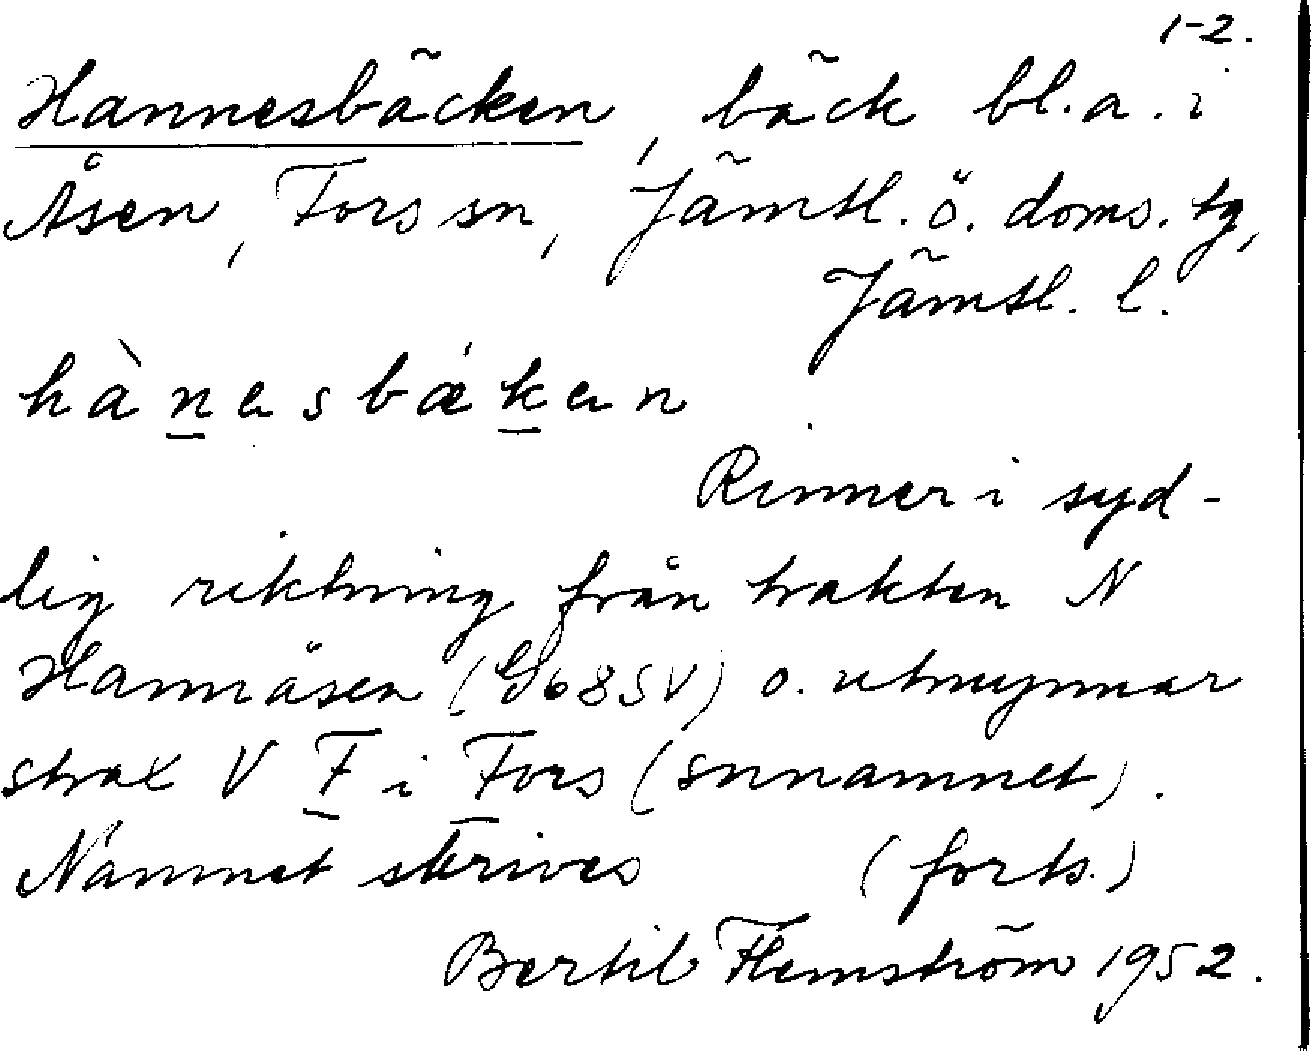 1-2.
Hannesbäcken, bäck bl.a. i
Åsen, Fors sn, Jämtl. ö. doms. tg,
Jämtl. l.
hànesbǽken
Rinner i syd-
lig riktning från trakten N
Hannåsen (G68SV) o. utmynnar
strax V F i Fors (snnamnet).
Namnet skrives (forts.)
Bertil Flemström 1952.